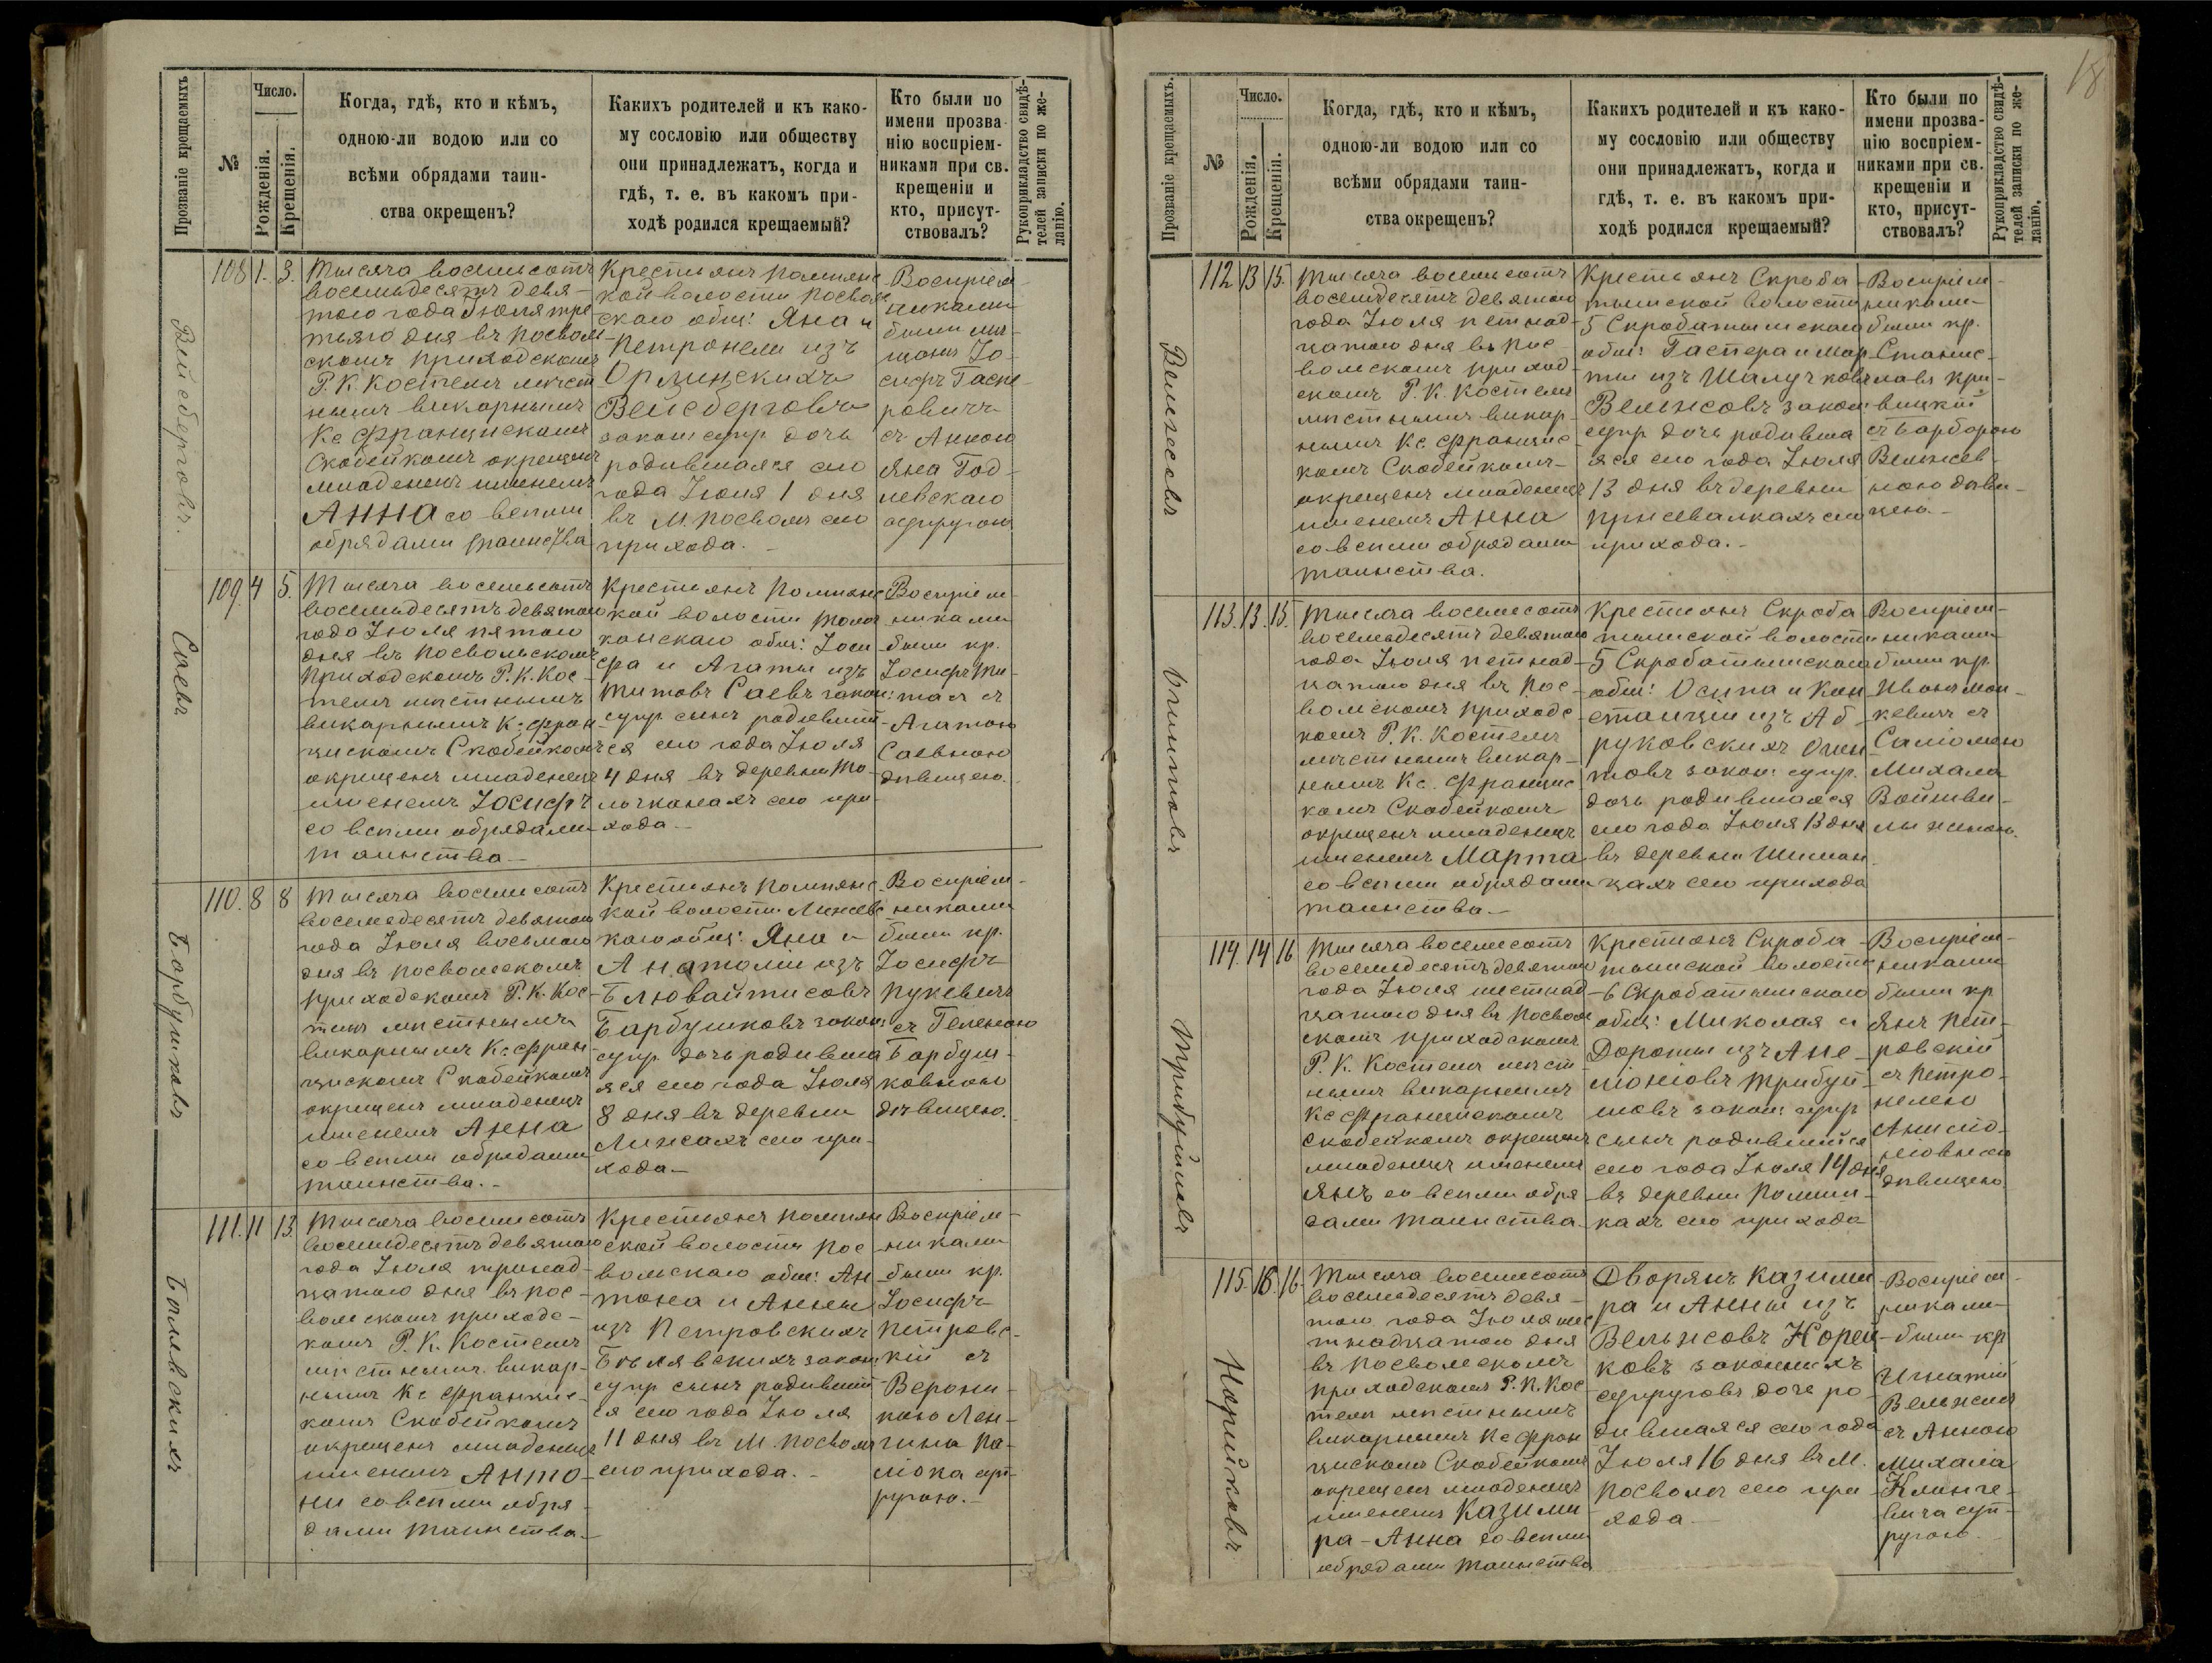 Прозваніе крещаемыхъ
№
Число.
Рожденія.
Крещенія.
Когда, гдѣ, кто и кѣмъ,
одною-ли водою или со
всѣми обрядами таин-
ства окрещенъ?
Какихъ родителей и къ како-
му сословію или обществу
они принадлежатъ, когда и
гдѣ, т. е. въ какомъ при-
ходѣ родился крещаемый?
Кто были по
имени прозва-
нію воспріем-
никами при св.
крещеніи и
кто, присут-
ствовалъ?
Рукоприкладство свидѣ-
телей записки по же-
ланію.
Вейсберговъ.
108 1. 3.
Тысяча восемьсотъ
восемьдесятъ девя-
таго года Іюля тре
тьяго дня въ Посволь
скомъ приходскомъ
Р. К. Костелѣ мѣст
нымъ викарнымъ
Кс Францискомъ
Скобейкомъ окрещенъ
младенецъ именемъ
АННА со всѣми
обрядами таинства
Крестьянъ Помпянс
кой волости Посволь
скаго общ: Яна и
Петронели изъ
Орлинскихъ
Вейсберговъ
закон супр дочь
родившаяся сего
года Іюля 1 дня
въ М. Посволѣ сего
прихода.
Воспріем
никами
были мѣ-
щанъ Іо-
сифъ Гаспе-
ровичъ
съ Анною
Яна Год-
левскаго
супругою
Саевъ
109. 4 5.
Тысяча восемьсотъ
восемьдесятъ девятаго
года Іюля пятаго
дня въ Посвольскомъ
приходскомъ Р. К. Кос-
телѣ мѣстнымъ
викарнымъ К: Фран
цискомъ Скобейкомъ
окрещенъ младенецъ
именемъ Іосифъ
со всѣми обрядами
таинства
Крестьянъ Помпянс
кой волости
канскаго общ: Іоси
фа и Агаты изъ
Титовъ Саевъ закон:
супр. сынъ родивший-
ся сего года Іюля
4 дня въ деревни То-
лочканахъ сего при-
хода.
Воспріем
никами
были кр.
Іосифъ Ти-
тасъ съ
Агатою
Саевною
дѣвицею.
Борбушковъ
110. 8 8
Тысяча восемьсотъ
восемьдесятъ девятаго
года Іюля восьмаго
дня въ Посвольскомъ
приходскомъ Р. К. Кос-
телѣ мѣстнымъ
викарнымъ К: Фран-
цискомъ Скобейкомъ
окрещенъ младенецъ
именемъ Анна
со всѣми обрядами
таинства.
Крестьянъ Помпянс
кой волости
каго общ: Яна и
Анатоліи изъ
Блювайтисовъ
Барбушковъ закон:
супр. дочь родивша
яся сего года Іюля
8 дня въ деревни
сего при-
хода.
Воспріем-
никами
были кр.
Іосифъ
Пукевичъ
съ Геленою
Барбуш-
ковною
дѣвицею.
Бѣлявскихъ
111. 11 13.
Тысяча восемьсотъ
восемьдесятъ девятаго
года Іюля тринад-
цатаго дня въ Пос-
вольскомъ приходс-
комъ Р. К. Костелѣ
мѣстнымъ викар-
нымъ Кс Францис-
комъ Скобейкомъ
окрещенъ младенецъ
именемъ Анто-
ни со всѣми обря-
дами таинства.
Крестьянъ Помпян
ской волости Пос
вольскаго общ: Ан
тона и Анны
изъ Петровскихъ
Бѣлявскихъ закон:
супр сынъ родивший
ся сего года Іюля
11 дня въ М. Посволѣ
сего прихода.
Воспріем-
никами
были кр.
Іосифъ
Петровс-
кій съ
Верони-
кою
супр-
ругою.
18
Прозваніе крещаемыхъ.
№
Число.
Рожденія.
Крещенія.
Когда, гдѣ, кто и кѣмъ,
одною-ли водою или со
всѣми обрядами таин-
ства окрещенъ?
Какихъ родителей и къ како-
му сословію или обществу
они принадлежатъ, когда и
гдѣ, т. е. въ какомъ при-
ходѣ родился крещаемый?
Кто были по
имени прозва-
нію воспріем-
никами при св.
крещеніи и
кто, присут-
ствовалъ?
Рукоприкладство свидѣ-
телей записки по же-
ланію.
Вельжсовъ
112 13 15.
Тысяча восемьсотъ
восемьдесятъ девятаго
года Іюля петнад-
цатаго дня въ Пос-
вольскомъ приход-
скомъ Р. К. Костелѣ
мѣстнымъ викар-
нымъ Кс. Францис-
комъ Скобейкомъ
окрещенъ младенецъ
именемъ Анна
со всѣми обрядами
таинства.
Крестьянъ Скроба-
тышской волости
5 Скробатышскаго
общ: Гаспера и Мар-
ты изъ Шалучковъ
Вельжсовъ закон
супр дочь родивша
яся сего года Іюля
13 дня въ деревни
Прысвалкахъ сего
прихода.
Воспріем-
никами
были кр.
Станис-
лавъ Кри-
вицкій
съ Барборою
ною дѣви-
цею.
Очинтовъ
113. 13. 15.
Тысяча восемьсотъ
восемьдесятъ девятаго
года Іюля петнад-
цатаго дня въ Пос-
вольскомъ приходс-
комъ Р. К. Костелѣ
мѣстнымъ викар-
нымъ Кс. Францис-
комъ Скобейкомъ
окрещенъ младенецъ
именемъ Марта
со всѣми обрядами
таинства.
Крестьянъ Скроба
тышской волости
5 Скробатышскаго
общ: Осипа и Кон
станціи изъ Аб-
руковскихъ Очин
товъ закон: супр.
дочь родившаяся
сего года Іюля 13 дня
въ деревни Шиман-
цахъ сего прихода
Воспріем-
никами
были кр
Иванъ Мон-
кевичъ съ
Саломею
Михала
женою.
Трибуйшевъ
114. 14 16
Тысяча восемьсотъ
восемьдесятъ девятаго
года Іюля шестнад-
цатаго дня въ Посволь
скомъ приходскомъ
Р. К. Костелѣ мѣст
нымъ викарнымъ
Кс Францискомъ
Скобейкомъ окрещенъ
младенецъ именемъ
Янъ со всѣми обря
дами таинства.
Крестьянъ Скроба-
тышской волости
6 Скробатышскаго
общ: Миколая и
Дороты изъ Ане-
ліоніовъ Трибуй-
шовъ закон: супр
сынъ родившийся
сего года Іюля 14 дня
въ деревни
кахъ сего прихода
Воспріем-
никами
были кр
Янъ Пет-
ровскій
съ Петро-
нелею
дѣвицею
Норейковъ
115. 16. 16.
Тысяча восемьсотъ
восемьдесятъ девя-
таго года Іюля шес
тнадцатаго дня
въ Посвольскомъ
приходскомъ Р. К. Кос
телѣ мѣстнымъ
викарнымъ Кс Фран
цискомъ Скобейкомъ
окрещенъ младенецъ
именемъ Казими
ра-Анна со всѣми
обрядами таинства
Дворянъ Казими
ра и Анны изъ
Вельжсовъ Норей-
ковъ законныхъ
супруговъ дочь ро
дившаяся сего года
Іюля 16 дня въ М.
Посволѣ сего при
хода
Воспріем-
никами
были кр
Игнатій
Вельжсъ
съ Анною
Михала
Климче-
вича суп-
ругою.